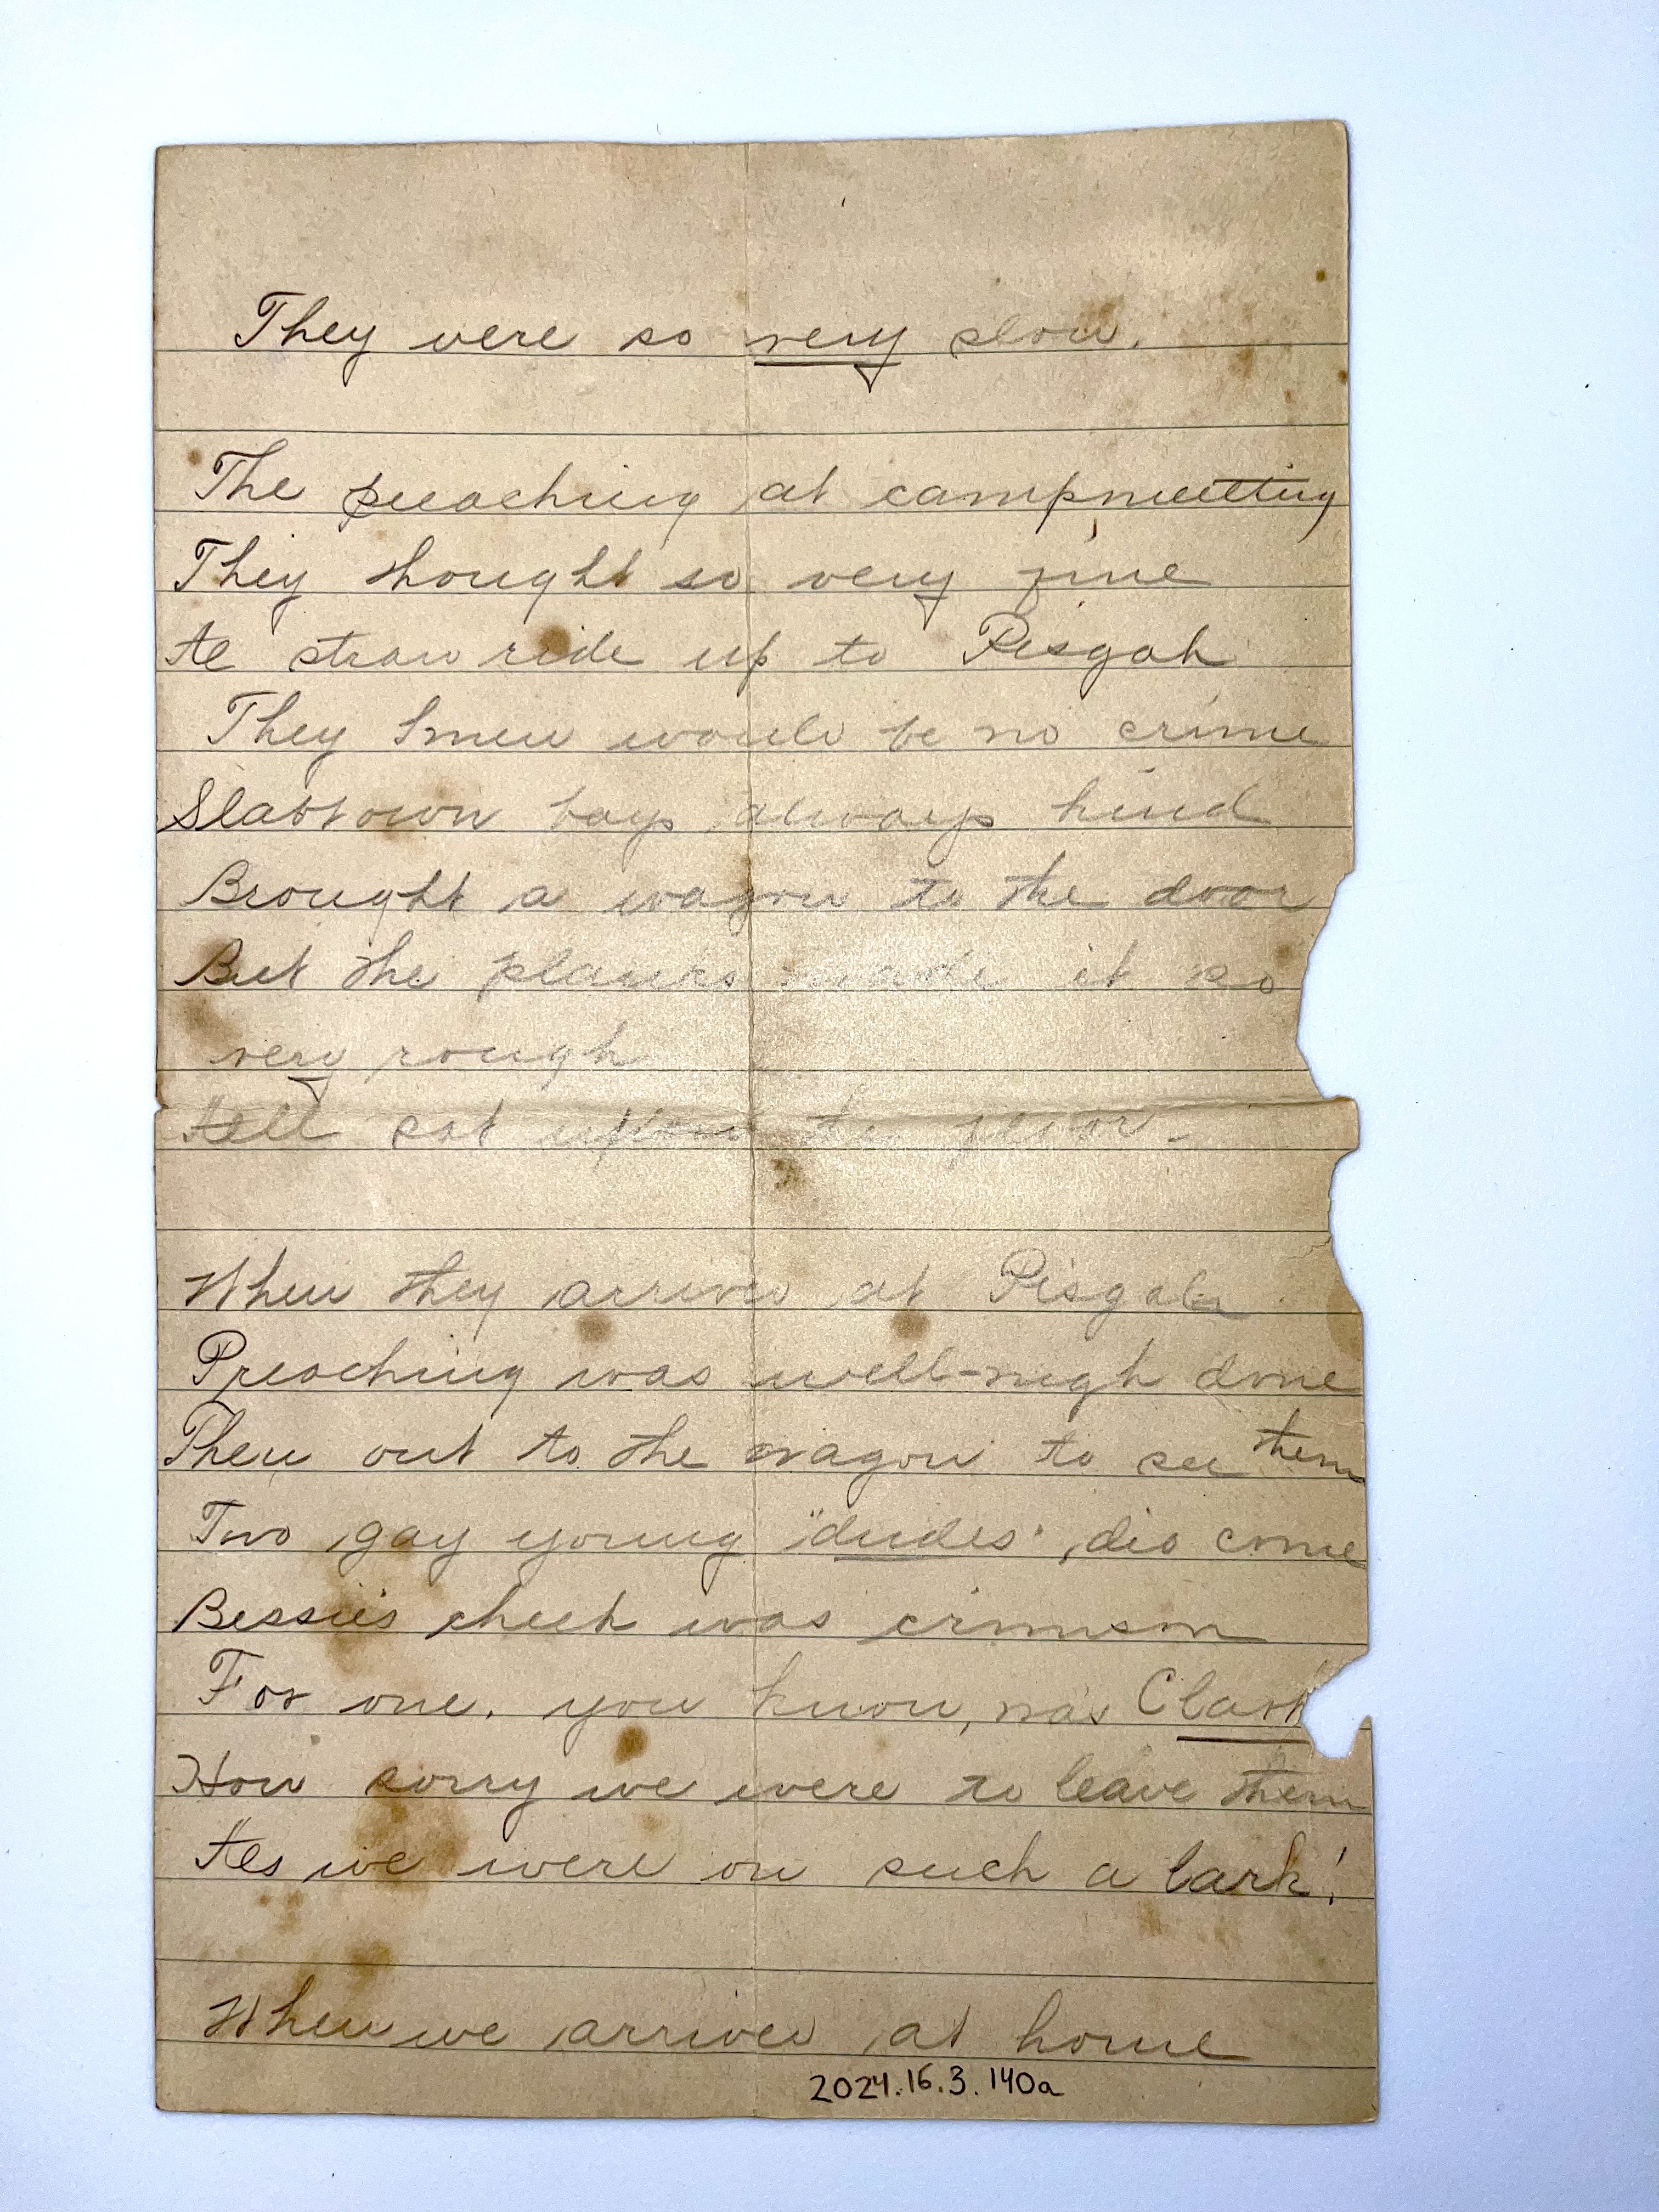 They were so very slow.
The preaching at campmeeting
They thought so very fine
A straw ride up to Pisgah
They knew would be no crime
Slabtown boys always kind
Brought a wagon to the door
But the planks made it so
very rough
All sat upon the floor.
When they arrived at Pisgah
Preaching was well-nigh done
Then out to the wagon to see them
Two gay young "dudes" did come
Bessie's cheek was crimson
For one, you know, was Clark
How sorry we were to leave them
As we were on such a lark!
When we arrived at home
2024.16.3.140a